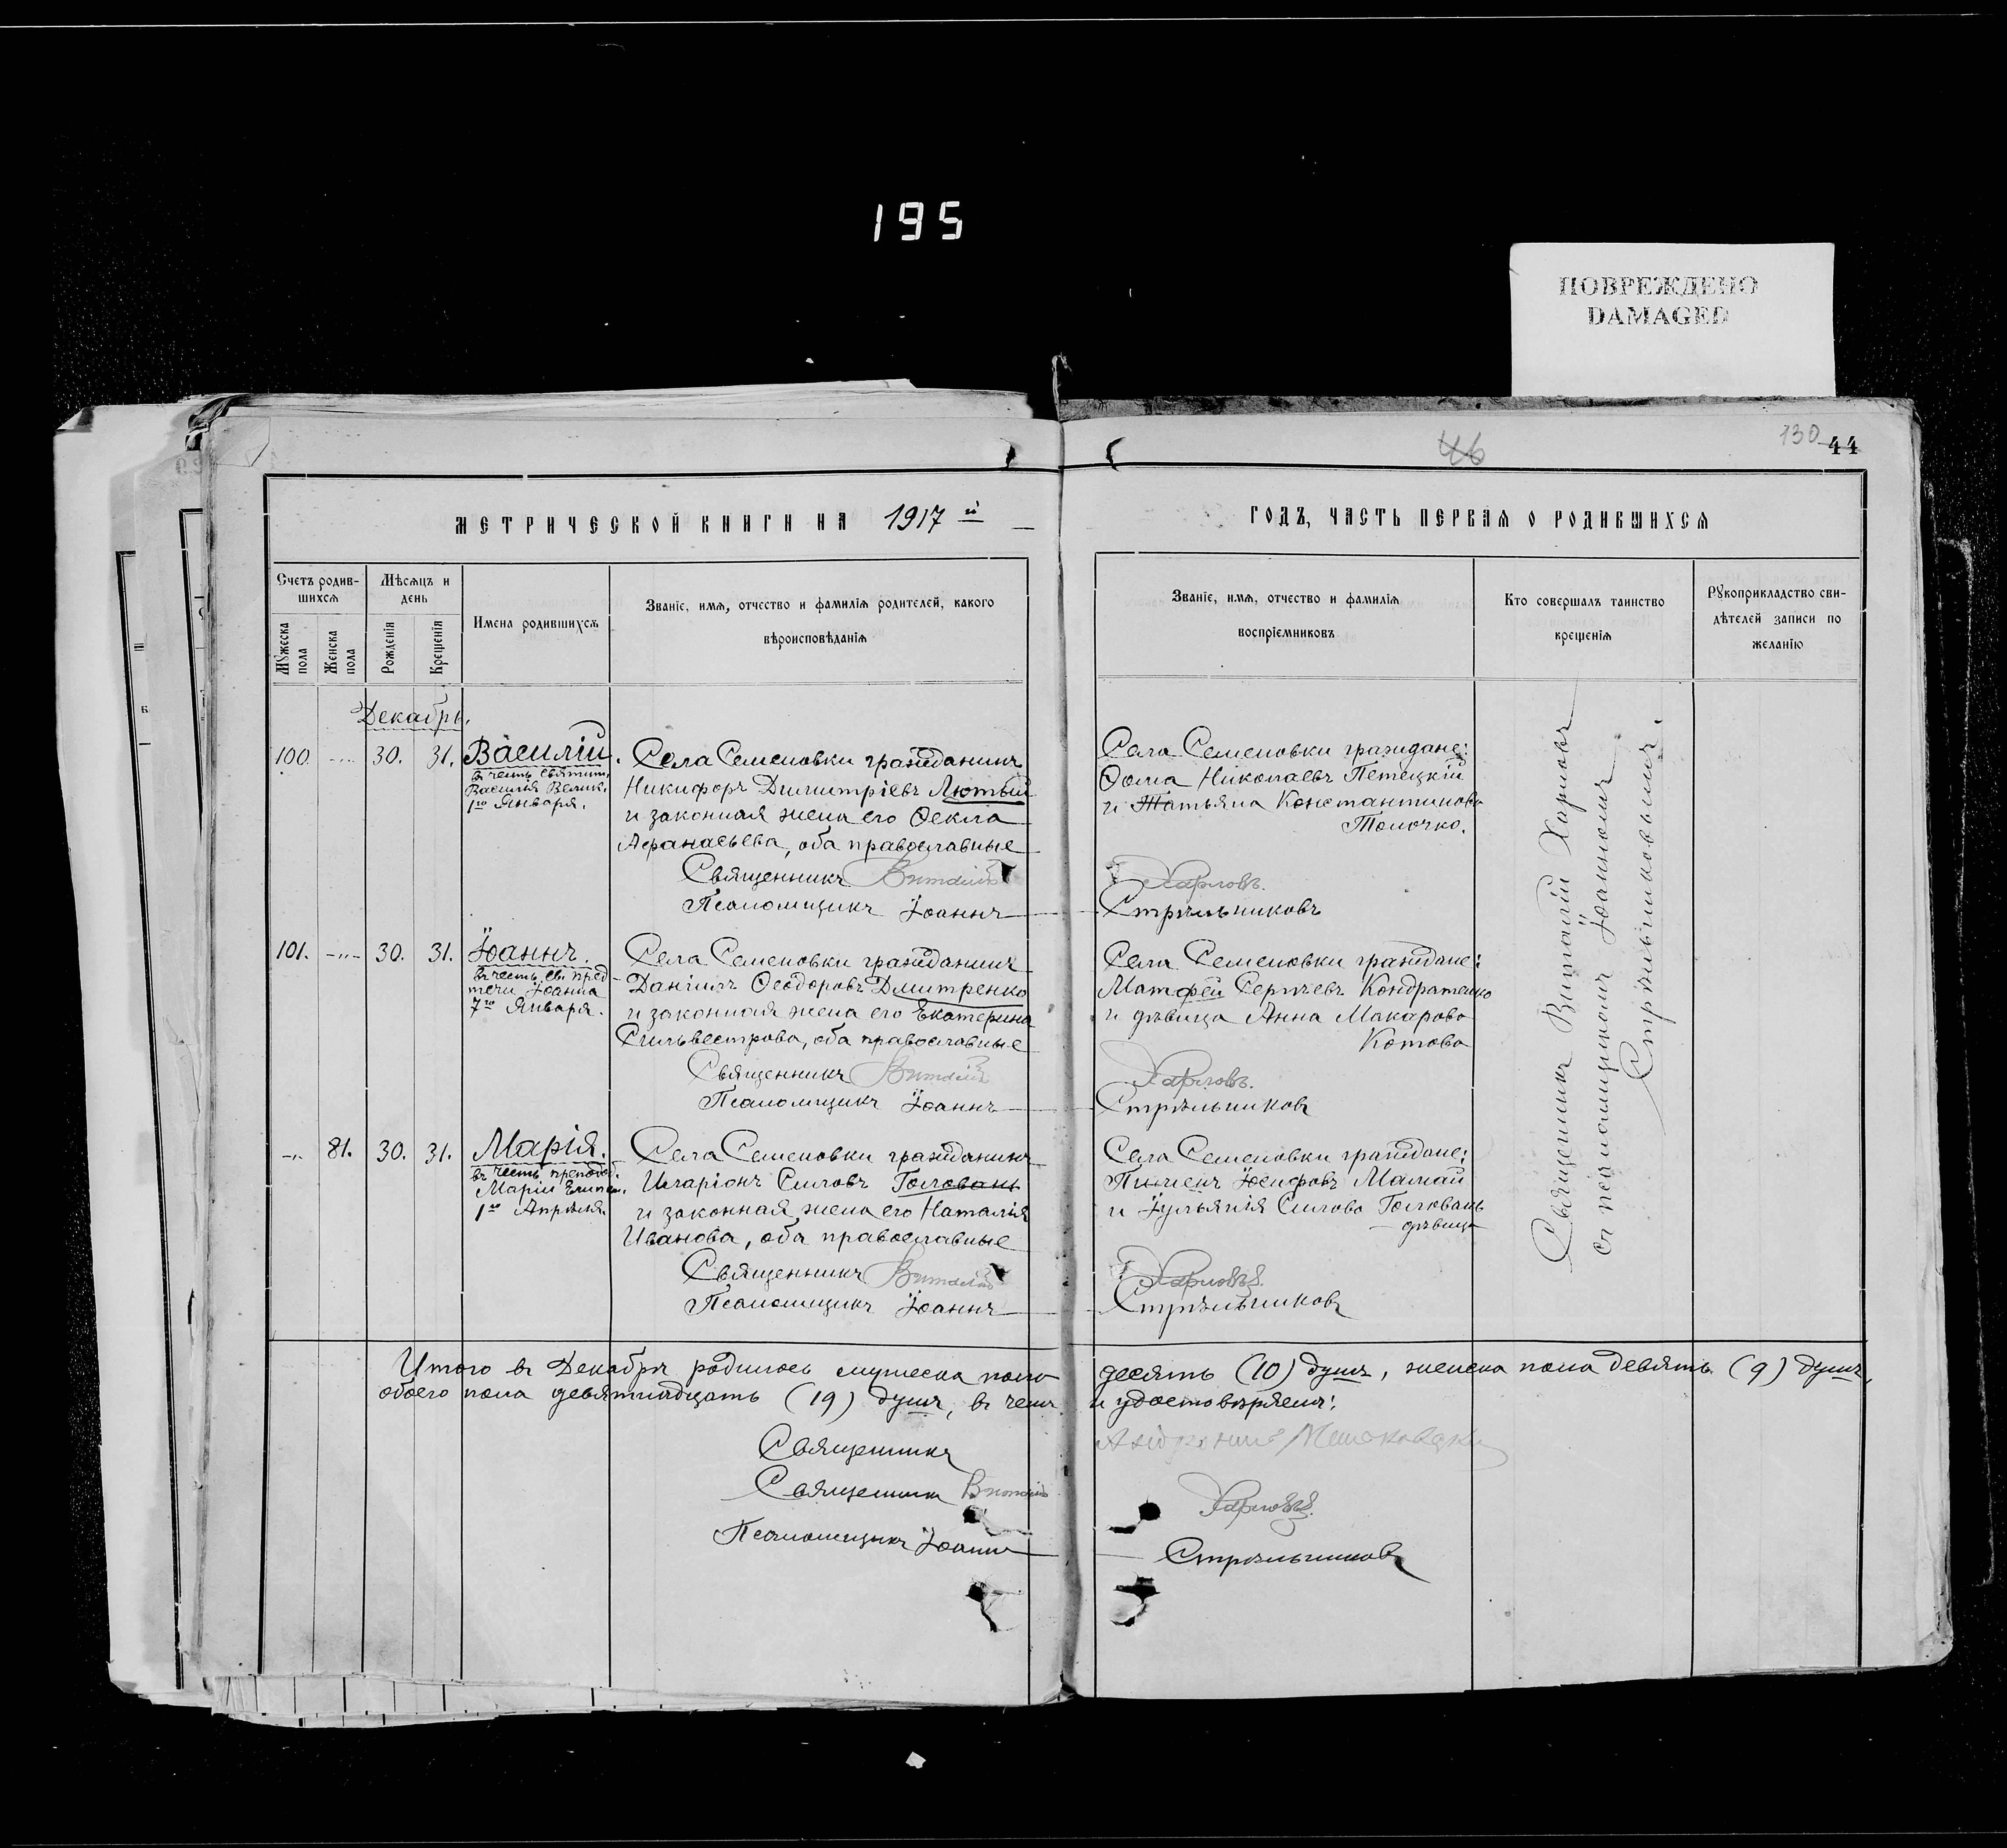 195
ПОВРЕЖДЕНО
DAMAGED
46
130
44
МЕТРИЧЕСКОЙ КНИГИ НА 1917й
ГОДЪ, ЧАСТЬ ПЕРВАЯ О РОДИВШИХСЯ
Счетъ родив-
шихся
Мужеска
пола
Женска
пола
Мѣсяцъ и
день
Рожденія
Крещенія
Имена родившихся
Званіе, имя, отчество и фамилія родителей, какого
вѣроисповѣданія
Званіе, имя, отчество и фамилія
воспріемниковъ
Кто совершалъ таинство
крещенія
Рукоприкладство сви-
дѣтелей записи по
желанію
Декабрь.
100. 30. 31. Василій.
въ честь святит.
Василія Велик.
1го Января.
Села Семеновки гражданинъ
Никифоръ Димитріевъ Лютый
и законная жена его Ѳекла
Аѳанасьева, оба православные
Священникъ Виталій
Псаломщикъ Іоаннъ
Села Семеновки граждане:
Ѳома Николаевъ Петецкій
и Татьяна Константинова
Толочко.
Харловъ.
Стрѣльниковъ
101. 30. 31. Іоаннъ.
въ честь св. пред
течи Іоанна
7го Января.
Села Семеновки гражданинъ
Даніилъ Ѳеодоровъ Дмитренко
и законная жена его Екатерина
Сильвестрова, оба православные
Священникъ Виталій
Псаломщикъ Іоаннъ
Села Семеновки граждане:
Матфей Сергѣевъ Кондратенко
и дѣвица Анна Макарова
Котова
Харловъ.
Стрѣльниковъ
81. 30. 31. Марія.
въ честь преподоб.
Маріи Египет.
1го Апрѣля.
Села Семеновки гражданинъ
Иларіонъ Силовъ Головань
и законная жена его Наталія
Иванова, оба православные
Священникъ Виталій
Псаломщикъ Іоаннъ
Села Семеновки граждане:
Пименъ Іосифовъ Мамай
и Іульянія Силова Головань
дѣвица
Харловъ.
Стрѣльниковъ
Священникъ Виталій Харловъ
съ псаломщикомъ Іоанномъ
Стрѣльниковымъ.
Итого въ Декабрѣ родилось мужеска пола десять (10) душъ, женска пола девять (9) душъ,
обоего пола девятнадцать (19) душъ, въ чемъ и удостовѣряемъ:
Священникъ
Священникъ Виталій Харловъ.
Псаломщикъ Іоаннъ Стрѣльниковъ